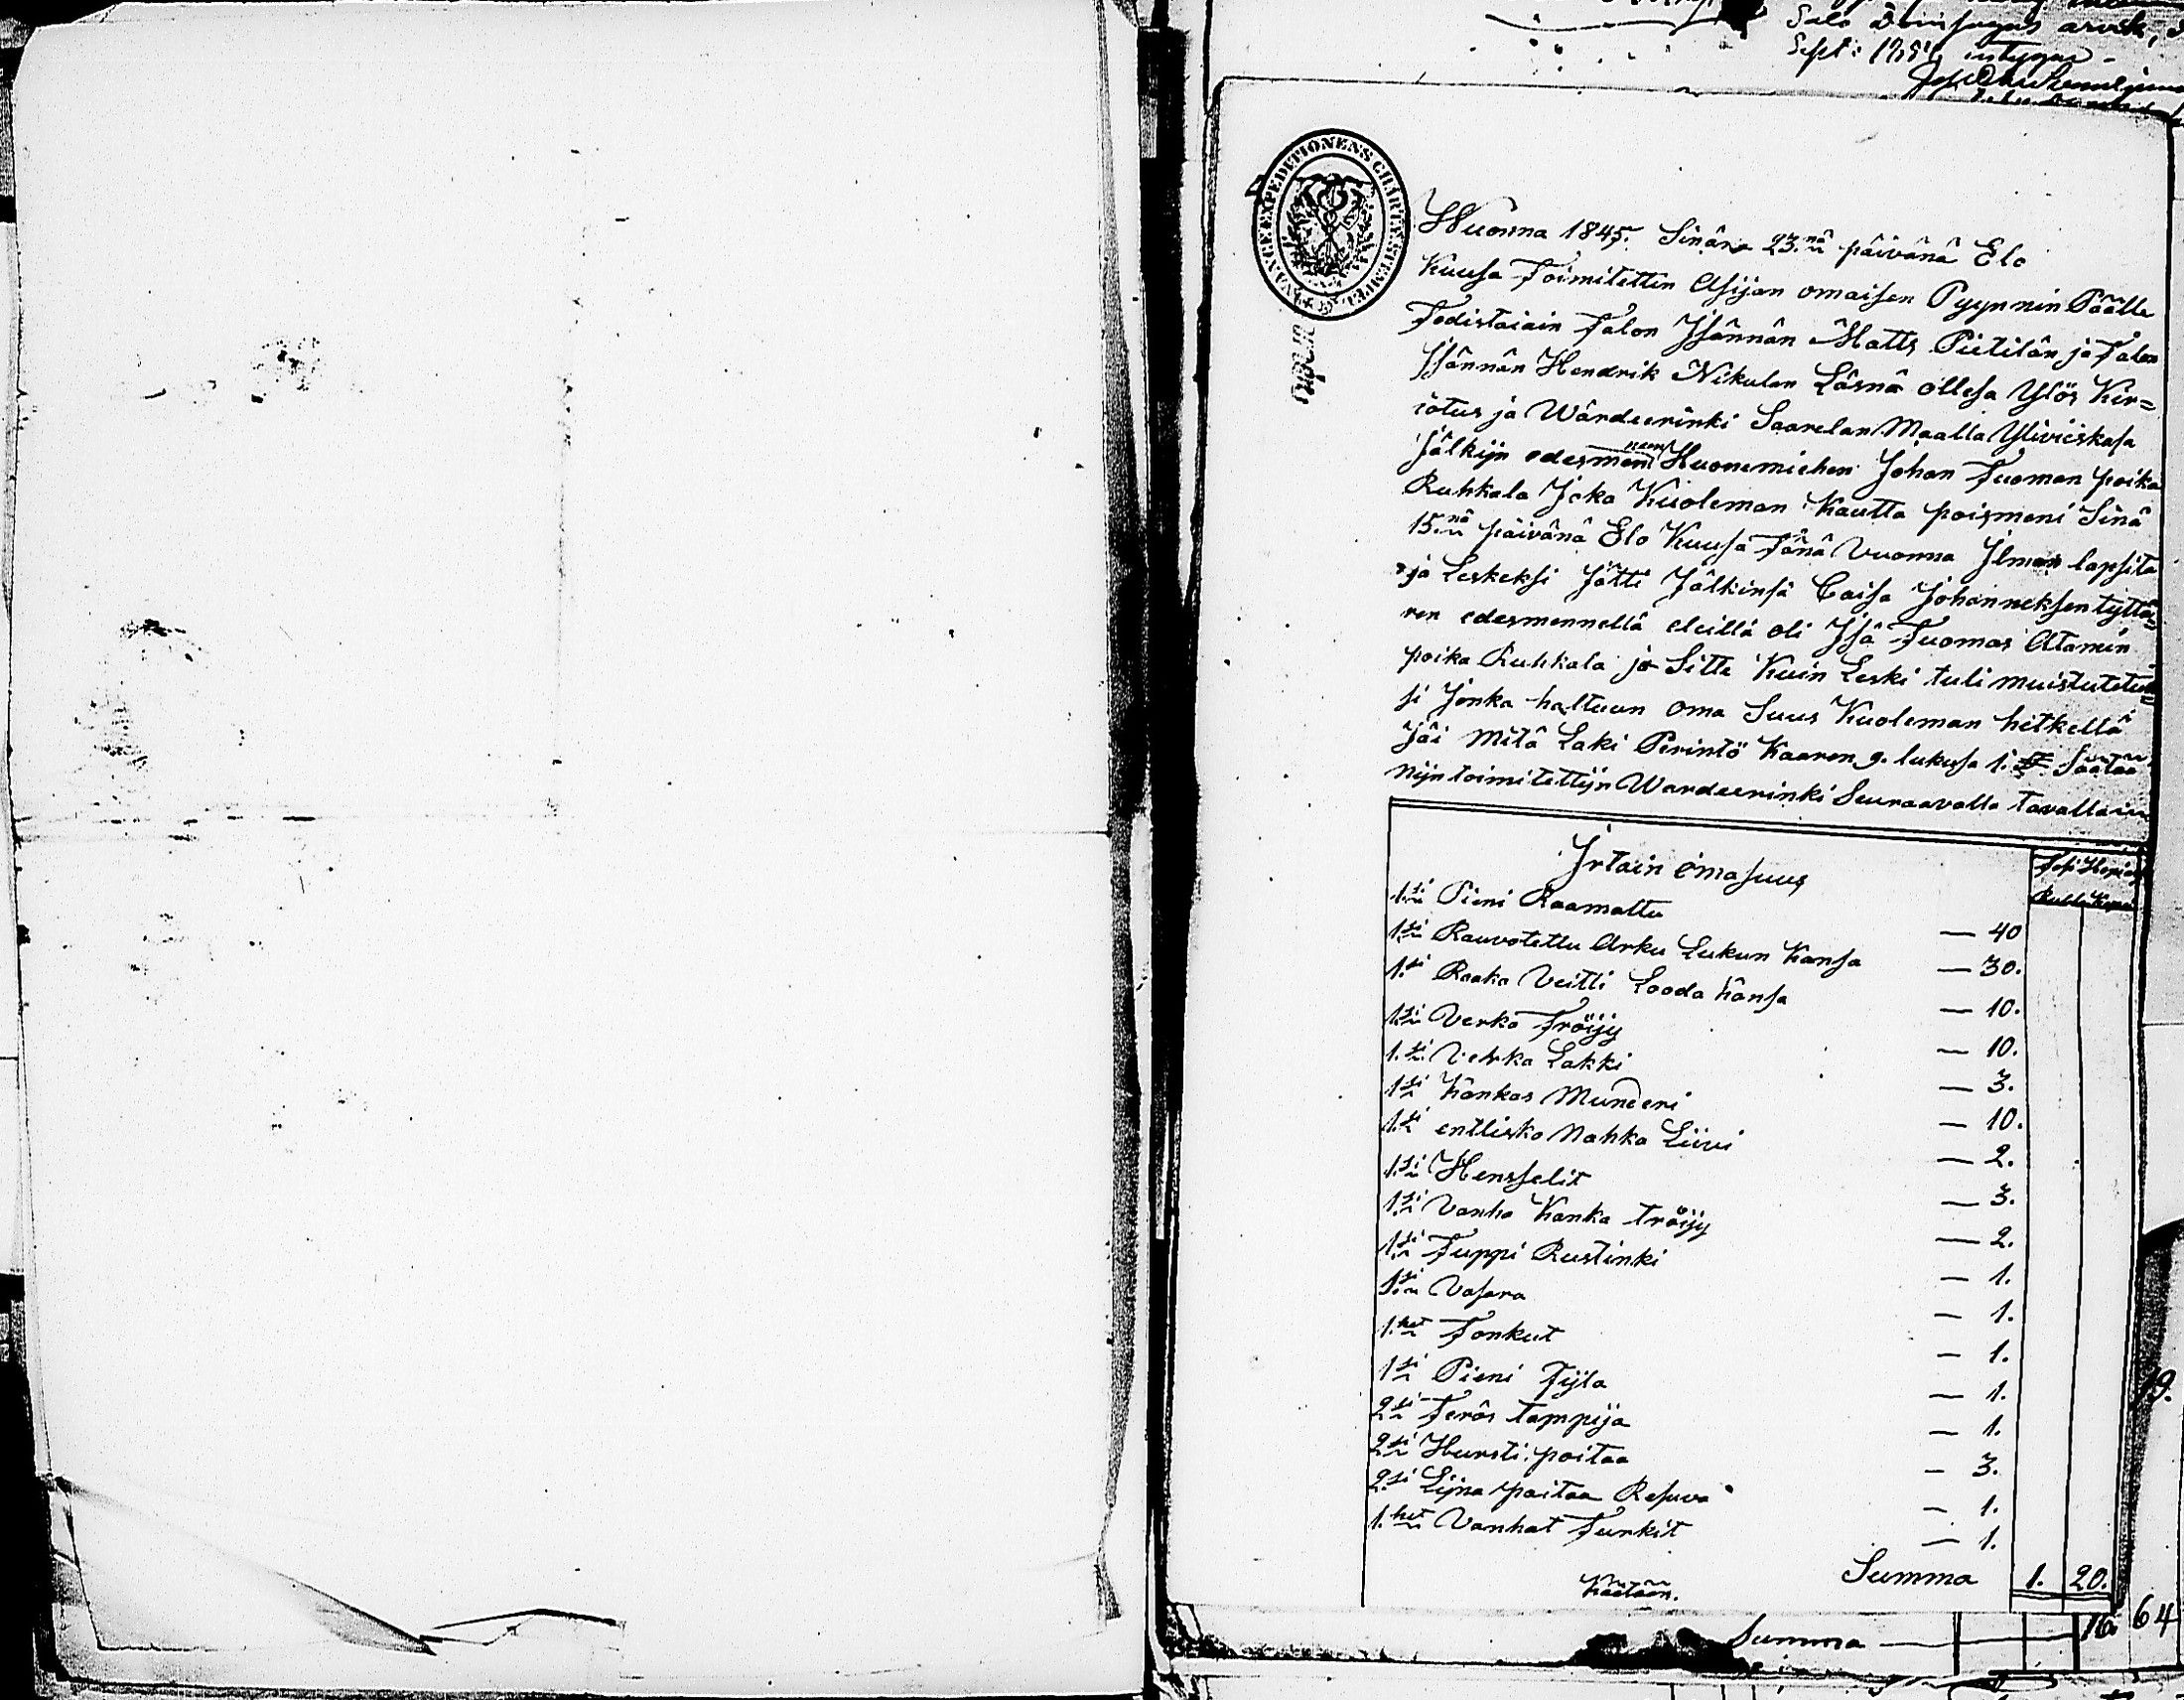 Salo
Sept:
Wuonna 1845. Sinâ 23.nâ päivänâ Elo
Kuusa Toimitettin Asijan omaisen Pyynnin Päälle
Todistaiain Talon Jsännän Matts Pietilän ja Talon
Jsännän Hendrik Nikulan Läsnä ollesa Ylös Kir=
iotus ja Wärdeerinki Saarelan Maalla Ylivieskasa
Jälkijn edesmen nem Huonemiehen Johan Tuoman poika
Ruhkala Joka Kuoleman Kautta poismeni Sinä
15.nâ päivänä Elo Kuusa Tänä Vuonna Jlman lapsita
ja Leskeksi Jätti Jälkinsä Caisa Johanneksen tyttä=
ren edesmennellä eleillä oli Jsä Tuomas Atamin
poika Ruhkala ja Sitte Kuin Leski tuli muistutetuk=
si Jonka haltuun oma Suus Kuoleman hetkellä
Jäi mitä Laki Perintö Kaaren 9. lukusa 1. § Säätää
Nijn toimitettijn Wardeerinki Seuraavalla tavallain
Jrtain omasuus
1.si Pieni Raamattu — 40
1.si Rauvotettu Arku Lukun Kansa — 30.
1.si Raaka Veitti Looda Kansa — 10.
1.si Verka Tröijy — 10.
1.si Verka Lakki — 3.
1.si Kankas Munderi — 10.
1.si entlisko Nahka Liivi — 2.
1.si Hensselit — 3.
1.si Vanha Kanka tröijy — 2.
1.si Tuppi Rustinki — 1.
1.si Vasara — 1.
1.het Tonkut — 1.
1.si Pieni Fijla — 1.
2.si Teräs tappija — 1.
2.si Hursti poitaa — 3.
2.si Lijna paitaa Resuva — 1.
1.het Vanhat Turkit — 1.
Summa 1. 20.
Käätään.
19.
Summa 16 64